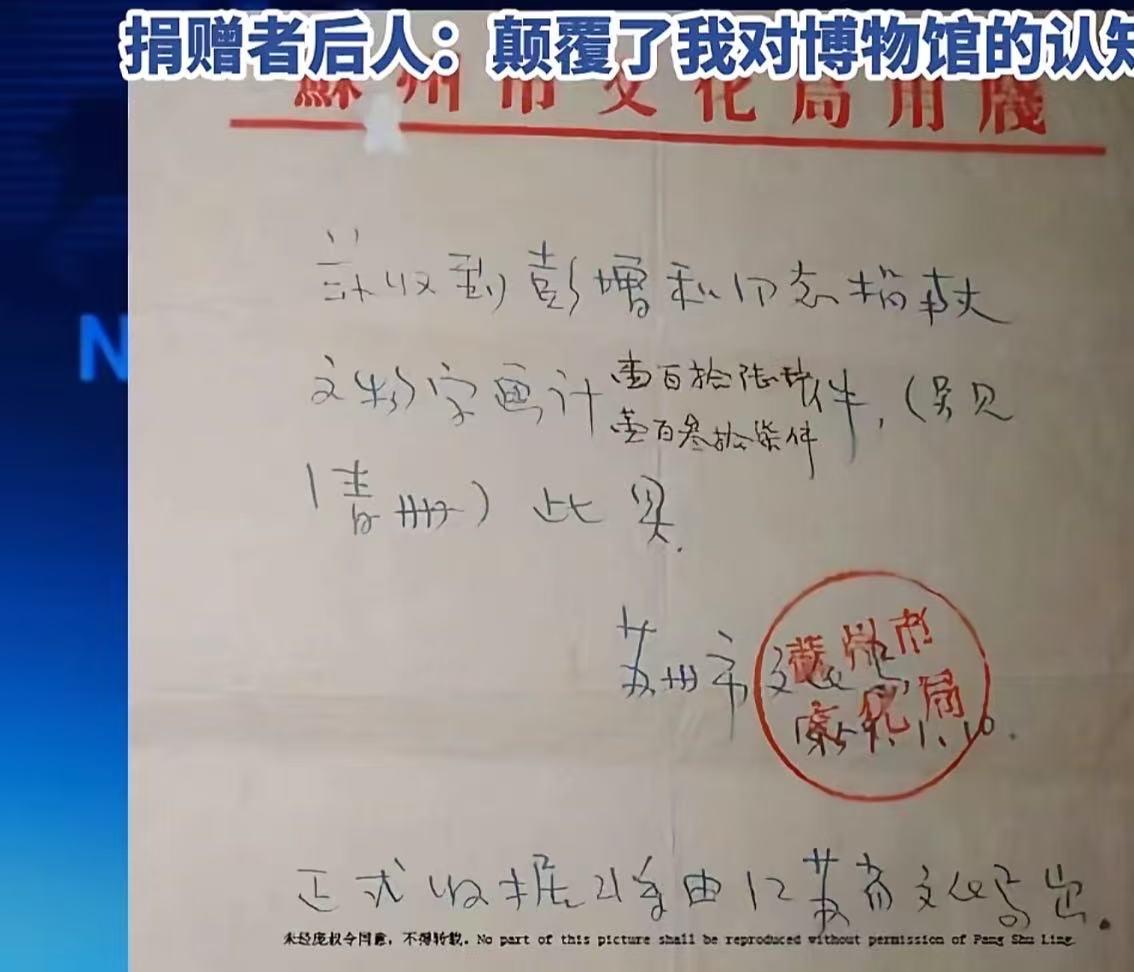 捐赠者后人：颠覆了我对博物馆的认知
蘇州市文化局用牋
N
兹收到彭增和同志捐献
文物字画计壹百拾陆 件，（另见
壹百叁拾柒件
清册）此具.
苏州市文化局
蘇州市
文化局
59.1.10.
正式收据将由江苏省文化局出.
未经庞叔令同意，不得转载. No part of this picture shall be reproduced without permission of Pang Shu Ling.